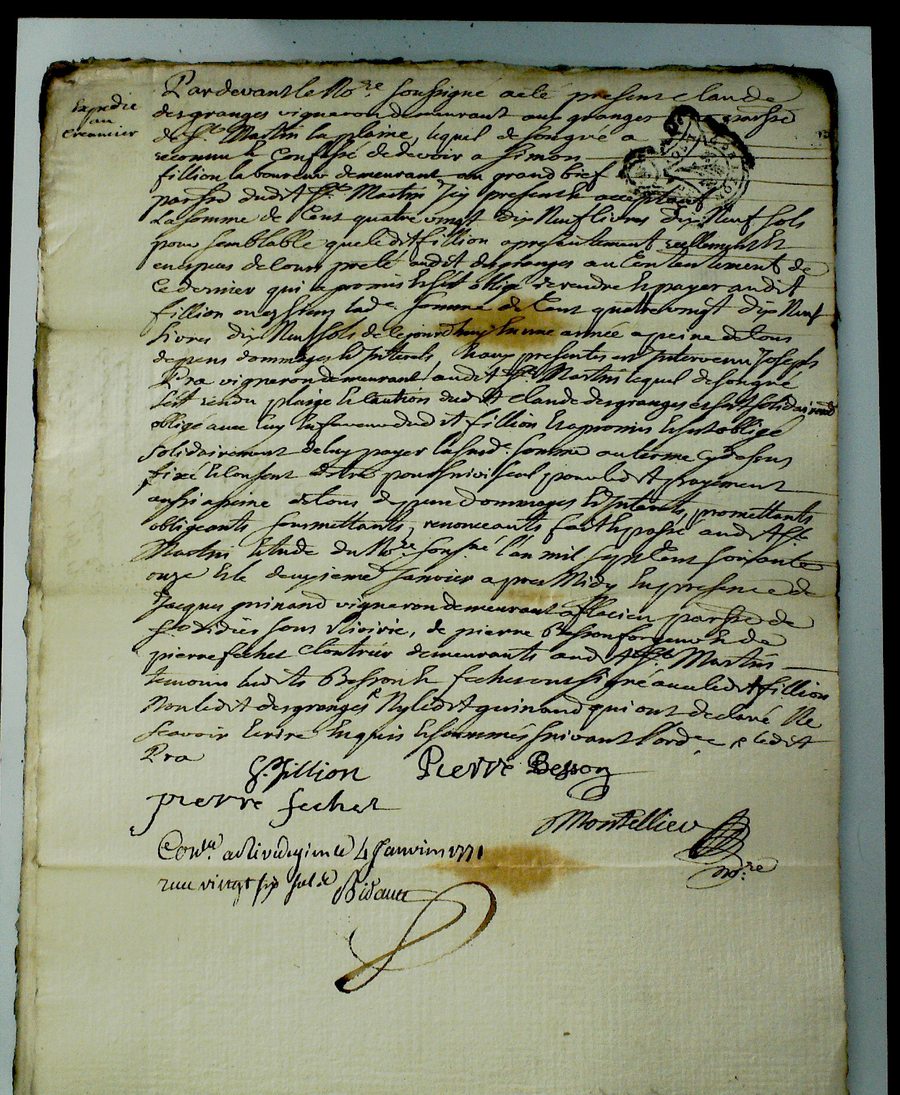 Expedié
au
Creancier
Pardevant le No.re soussigné a eté present Claude
desgranges vigneron demeurant aux granges parsse
de St. Martin la plaine, lequel de son gré a
reconnu & Confessé de devoir a Simon
fillion laboureur demeurant au grand bief
parsse dudit St. Martin jcy present & acceptant
La somme de Cent quatre vingt dix Neuf livres dix Neuf sols
pour semblable que ledit fillion a presentement reellement Et
en especes de cours preté audit desgranges au Contentement de
Ce dernier qui a promis & s'est obligé de rendre & payer audit
fillion ou es siens lad.e somme de Cent quatre vingt dix Neuf
livres dix Neuf sols de ce jourd'huy En une année a peine de tous
depens dommages & jnterets, & aux presentes est jntervenu Joseph
Pra vigneron demeurant audit St. Martin lequel de son gré
s'est rendu plaige & Caution dudit Claude desgranges & s'est solidairem.t
obligé avec luy En faveur dudit fillion Et a promis & s'est obligé
solidairement de luy payer la susd.e somme au terme cy dessus
fixé & Consent d'etre poursuivi seul pour ledit payement
aussi a peine de tous depens dommages & jnterets, promettants
obligeants, soumettants, renonceants fait & passé audit St.
Martin Etude du No.re sousné l'an mil sept Cent soixante
onze & le deuxieme Janvier apres Midy En presence de
Jacques guinand vigneron demeurant a flacieu parsse de
St Didier sous Riverie, de pierre Besson forgeur & de
pierre fechet Cloutrier demeurants audit St. Martin
temoins lesdits Besson & fechet ont signé avec ledit fillion
Non ledit desgranges Ny ledit guinand qui ont declaré Ne
scavoir Ecrire Enquis & sommés suivant l'ord.ce & ledit
Pra
S. fillion Pierre Besson
pierre fechet
Montellier
no.re
Con.lé a Rivedegier le 4 Janvier 1771
recu vingt six sol